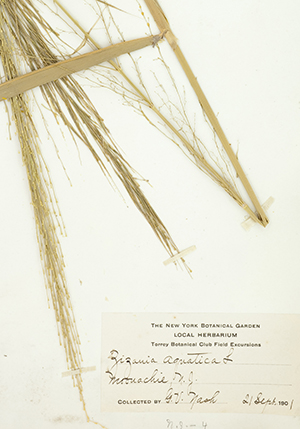 THE NEW YORK BOTANICAL GARDEN
LOCAL HERBARIUM
Torrey Botanical Club Field Excursions
Zizania aquatica L
Moonachie, N.J.
COLLECTED BY G.V. Nash 21 Sept. 1901